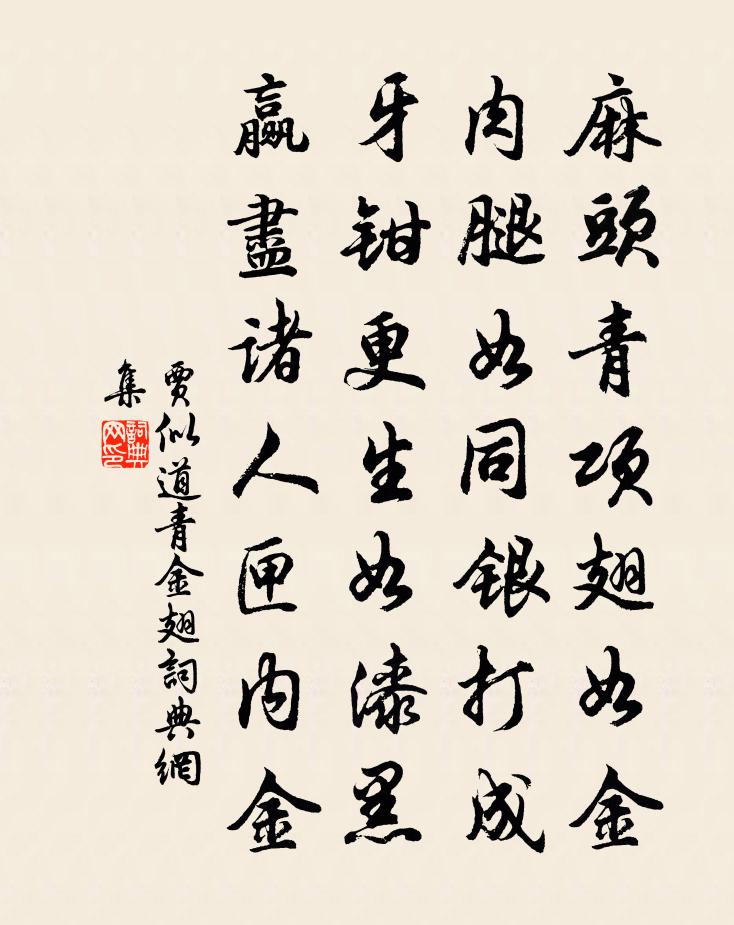 麻頭青项翅如金
肉腿如同銀打成
牙钳更生如漆黑
贏盡诸人匣内金
賈似道青金翅詞典網
集
詞典
网印